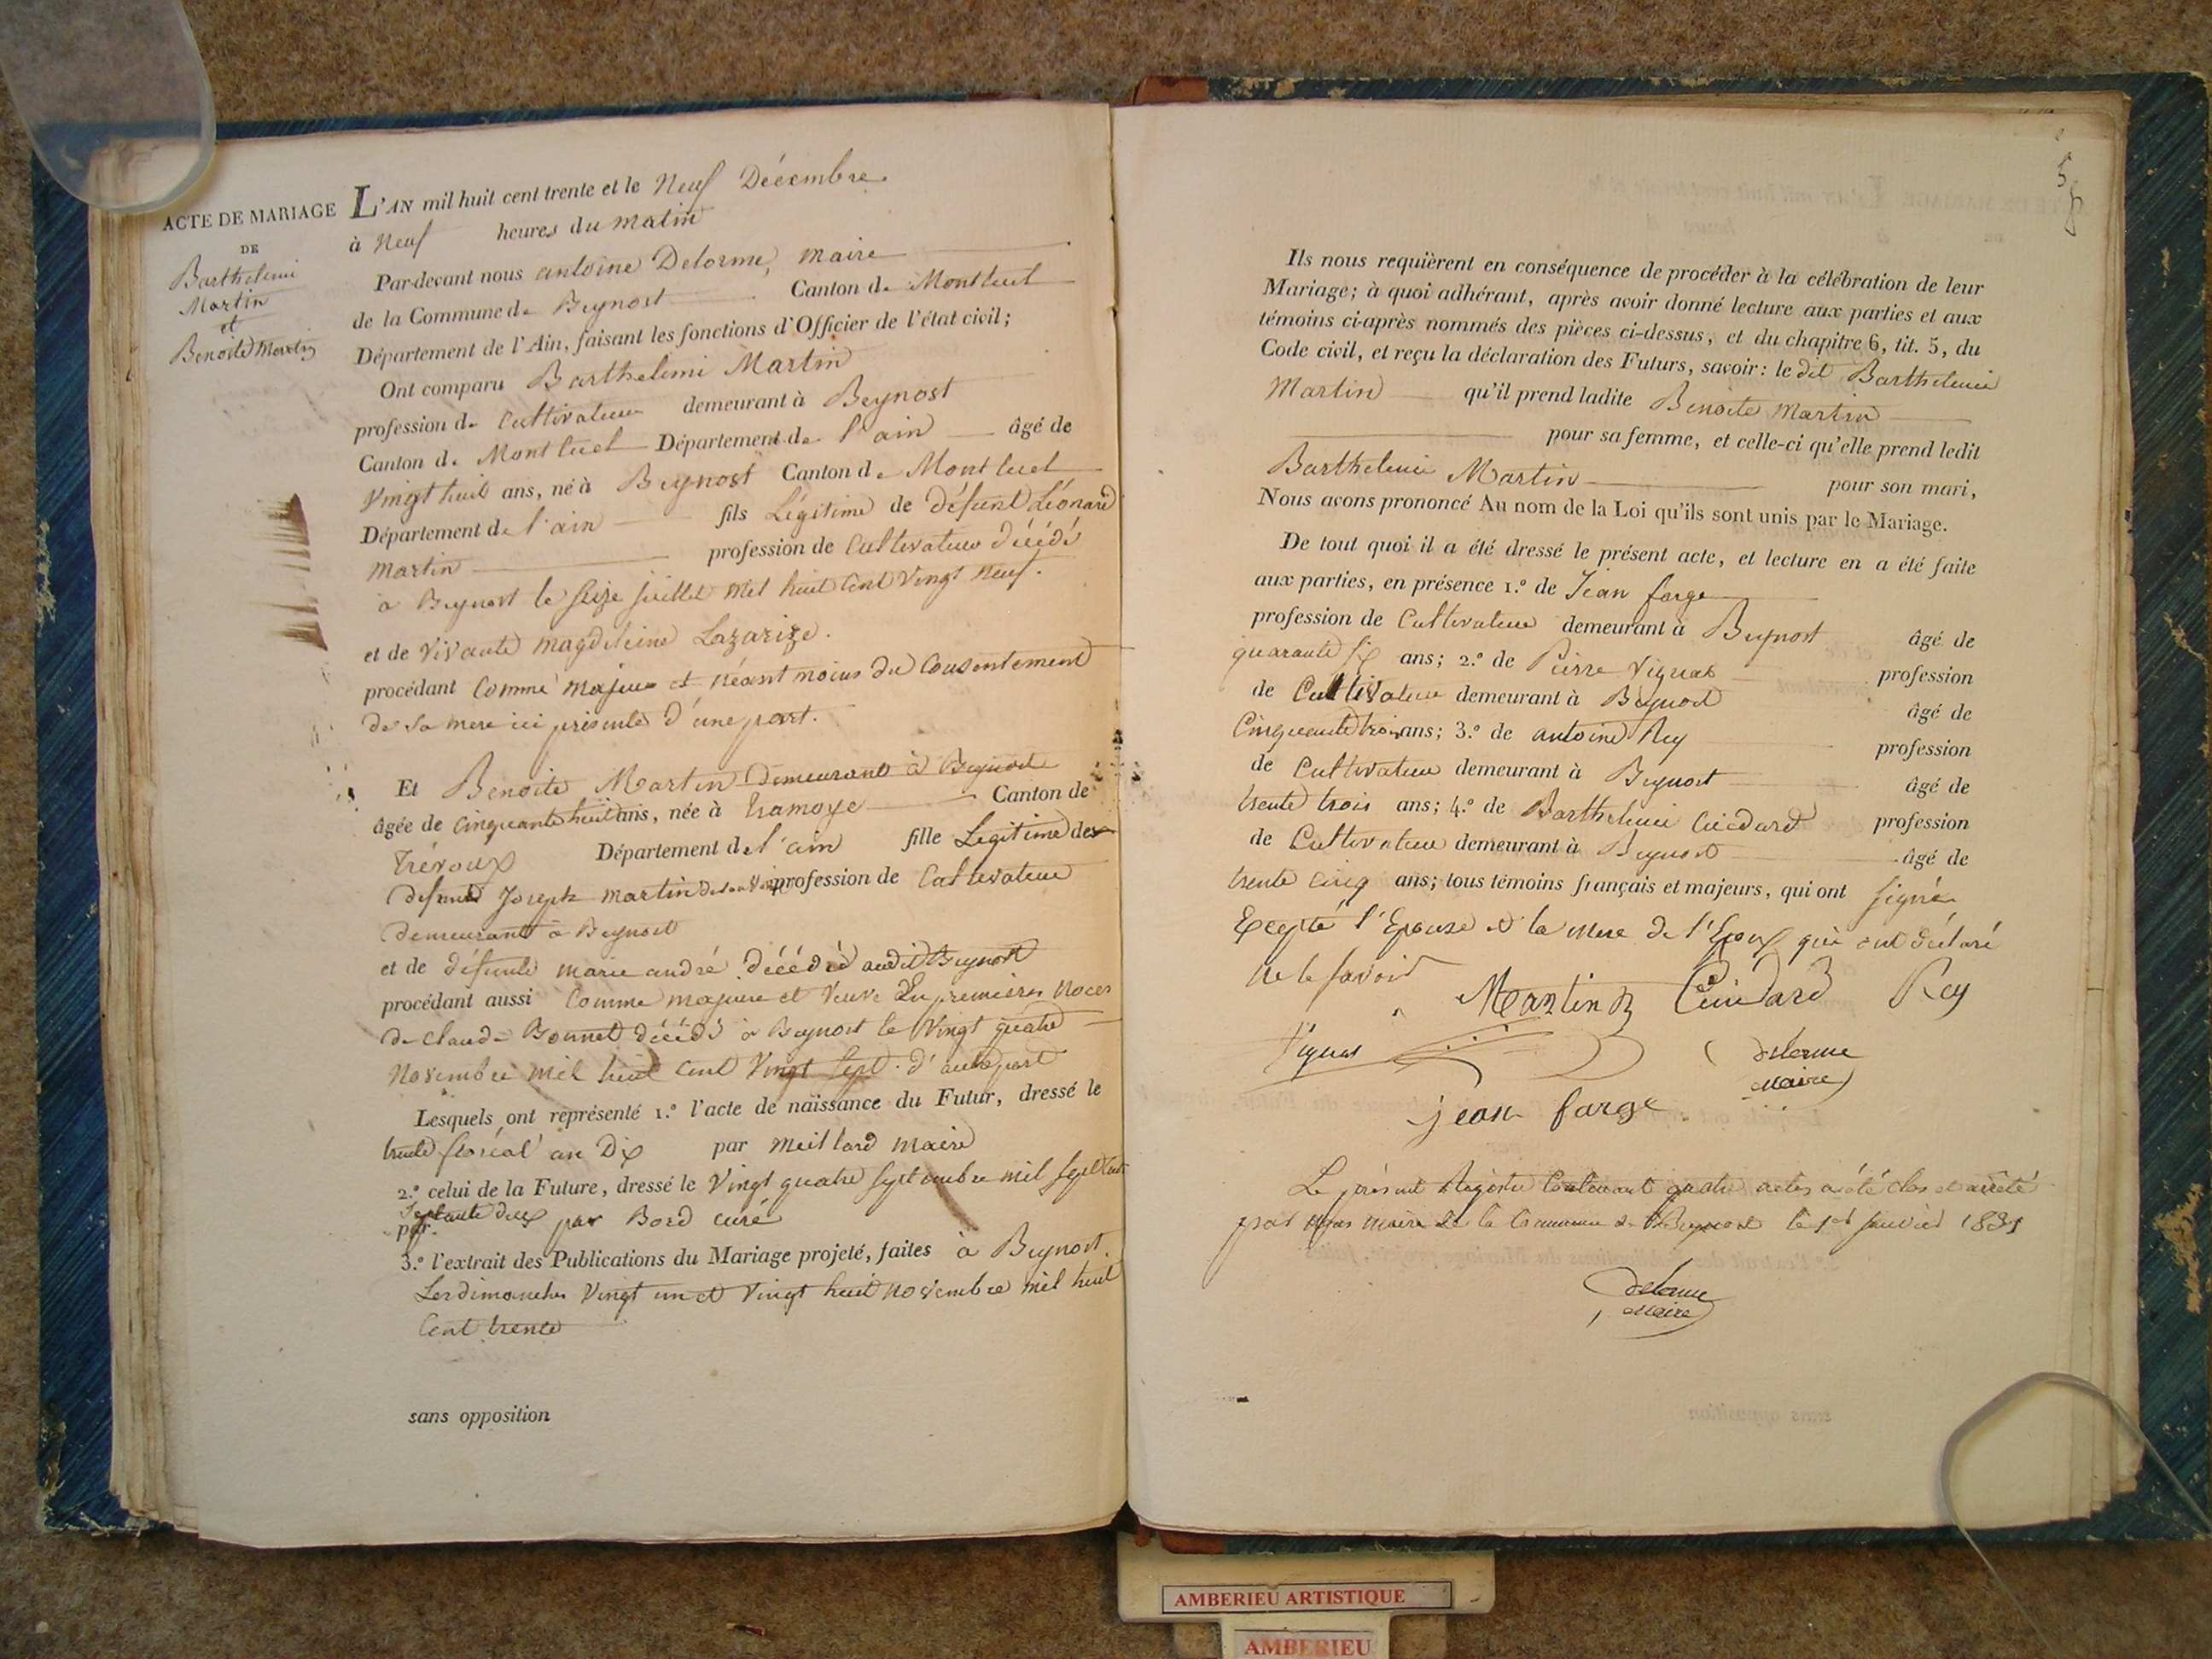 ACTE DE MARIAGE
DE
Barthelemi
Martin
et
Benoite Martin
L'AN mil huit cent trente et le Neuf Décembre
à Neuf heures du matin
Par-devant nous antoine Delorme, maire
de la Commune de Beynost Canton de Montluel
Département de l'Ain, faisant les fonctions d'Officier de l'état civil;
Ont comparu Barthelemi Martin
profession de Cultivateur demeurant à Beynost
Canton de Montluel Département de l'ain âgé de
Vingt huit ans, né à Beynost Canton de Montluel
Département de l'ain fils Légitime de défunt Léonard
Martin profession de Cultivateur décédé
a Beynost le seize juillet mil huit Cent Vingt neuf.
et de Vivante magdeleine Lazarize.
procédant Comme majeur et néant moins du Consentement
de sa mere ici présente d'une part.
Et Benoite Martin demeurant à Beynost
âgée de cinquante huit ans, née à tramoye Canton de
Trévoux Département de l'ain fille Legitime des
defunts Joseph martin profession de Cultivateur
demeurant à Beynost
et de défunte marie andré décédée audit Beynost
procédant aussi Comme majeure et Veuve En premieres Noces
de Claude Bonnet décédé à Beynost le Vingt quatre
novembre mil huit cent Vingt sept. d'autre part
Lesquels ont représenté 1.º l'acte de naissance du Futur, dressé le
trente floréal an Dix par meillard maire
2.º celui de la Future, dressé le Vingt quatre septembre mil sept cent
septante deux
par par Bord curé
3.º l'extrait des Publications du Mariage projeté, faites à Beynost.
Les dimanches Vingt un et Vingt huit novembre mil huit
Cent trente
sans opposition
5
Ils nous requièrent en conséquence de procéder à la célébration de leur
Mariage; à quoi adhérant, après avoir donné lecture aux parties et aux
témoins ci-après nommés des pièces ci-dessus, et du chapitre 6, tit. 5, du
Code civil, et reçu la déclaration des Futurs, savoir: le dit Barthelemi
Martin qu'il prend ladite Benoite Martin
pour sa femme, et celle-ci qu'elle prend ledit
Barthelemi Martin pour son mari,
Nous avons prononcé Au nom de la Loi qu'ils sont unis par le Mariage.
De tout quoi il a été dressé le présent acte, et lecture en a été faite
aux parties, en présence 1.º de Jean farge
profession de Cultivateur demeurant à Beynost âgé de
quarante six ans; 2.º de Pierre Vignat profession
de Cultivateur demeurant à Beynost âgé de
Cinquante trois ans; 3.º de antoine Rey profession
de Cultivateur demeurant à Beynost âgé de
trente trois ans; 4.º de Barthelemi profession
de Cultivateur demeurant à Beynost âgé de
trente cinq ans; tous témoins français et majeurs, qui ont signé
Excepté l'Epouse et la mere de l'Epoux qui ont déclaré
ne le savoir
Martin Rey
Vignat delorme
maire
jean farge
Le présent Registre Contenant quatre actes a été clos et arrêté
par nous maire de la Commune de Beynost le 1er janvier 1831
delorme
maire
AMBERIEU ARTISTIQUE
AMBERIEU